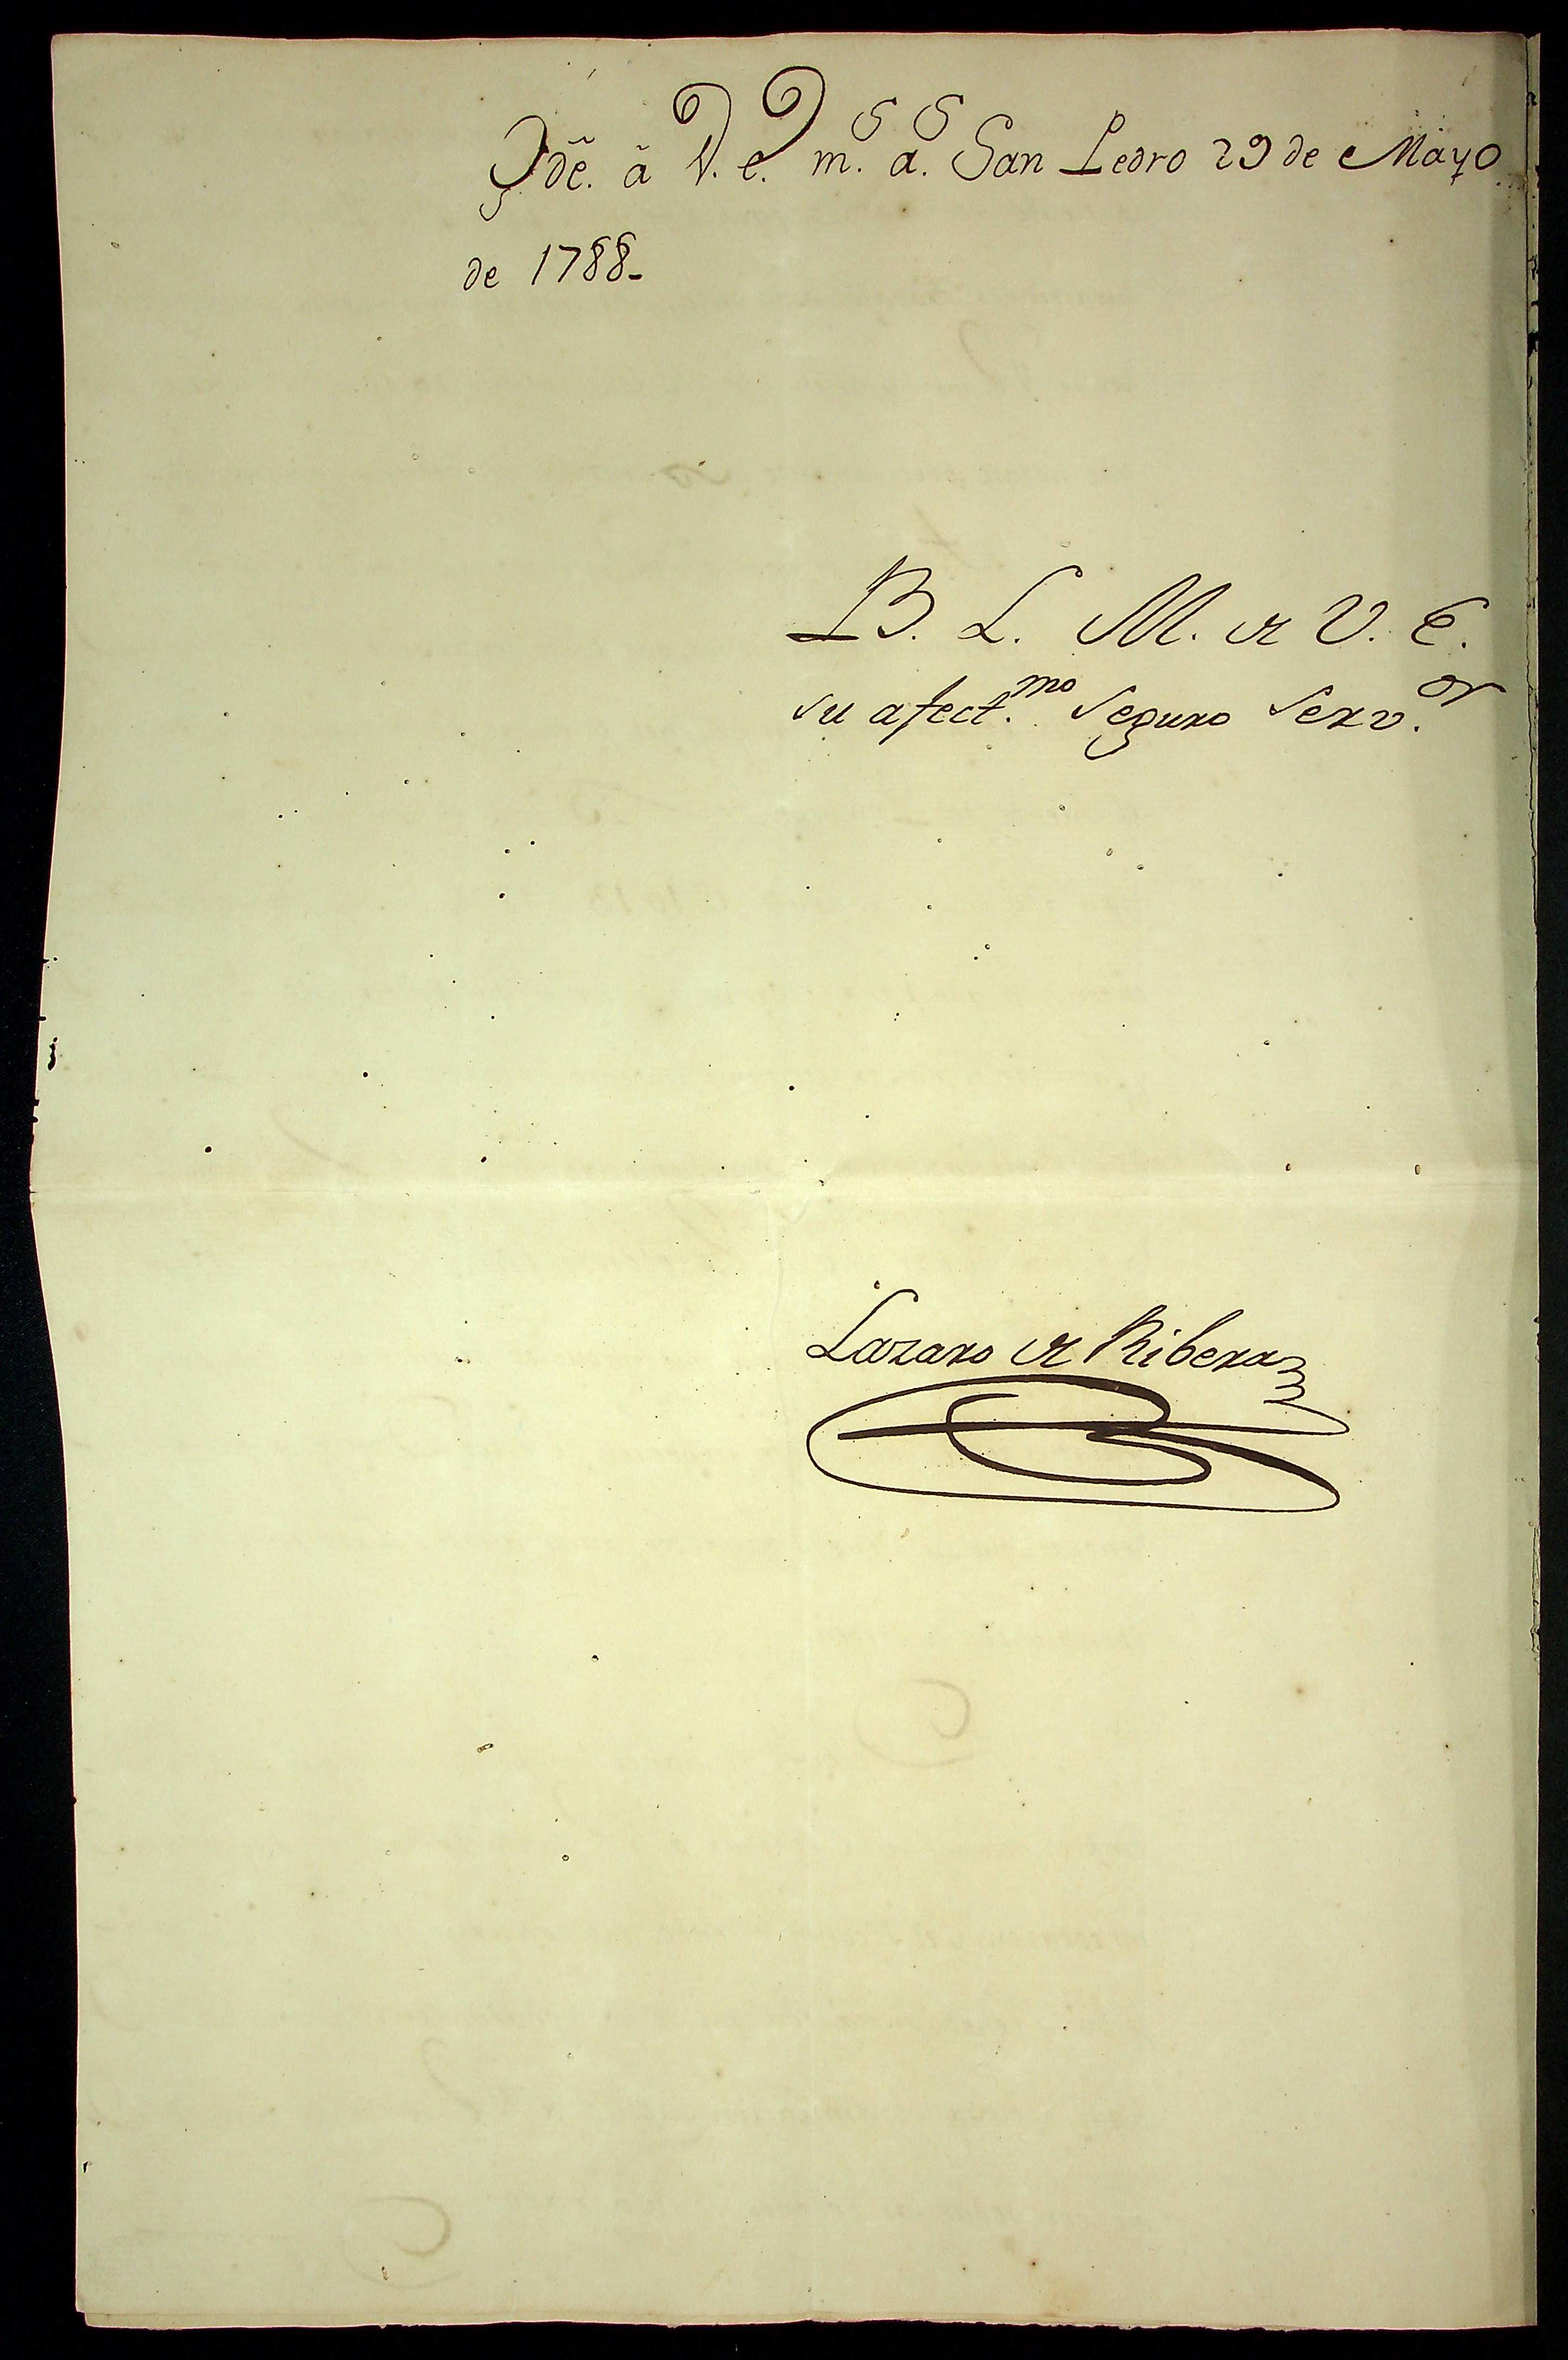 gue. á V. E. m.s a.s San Pedro 29 de Mayo
de 1788-
B. L. M. de V. E.
su afect.mo Seguro Serv.or
Lazaro de Ribera